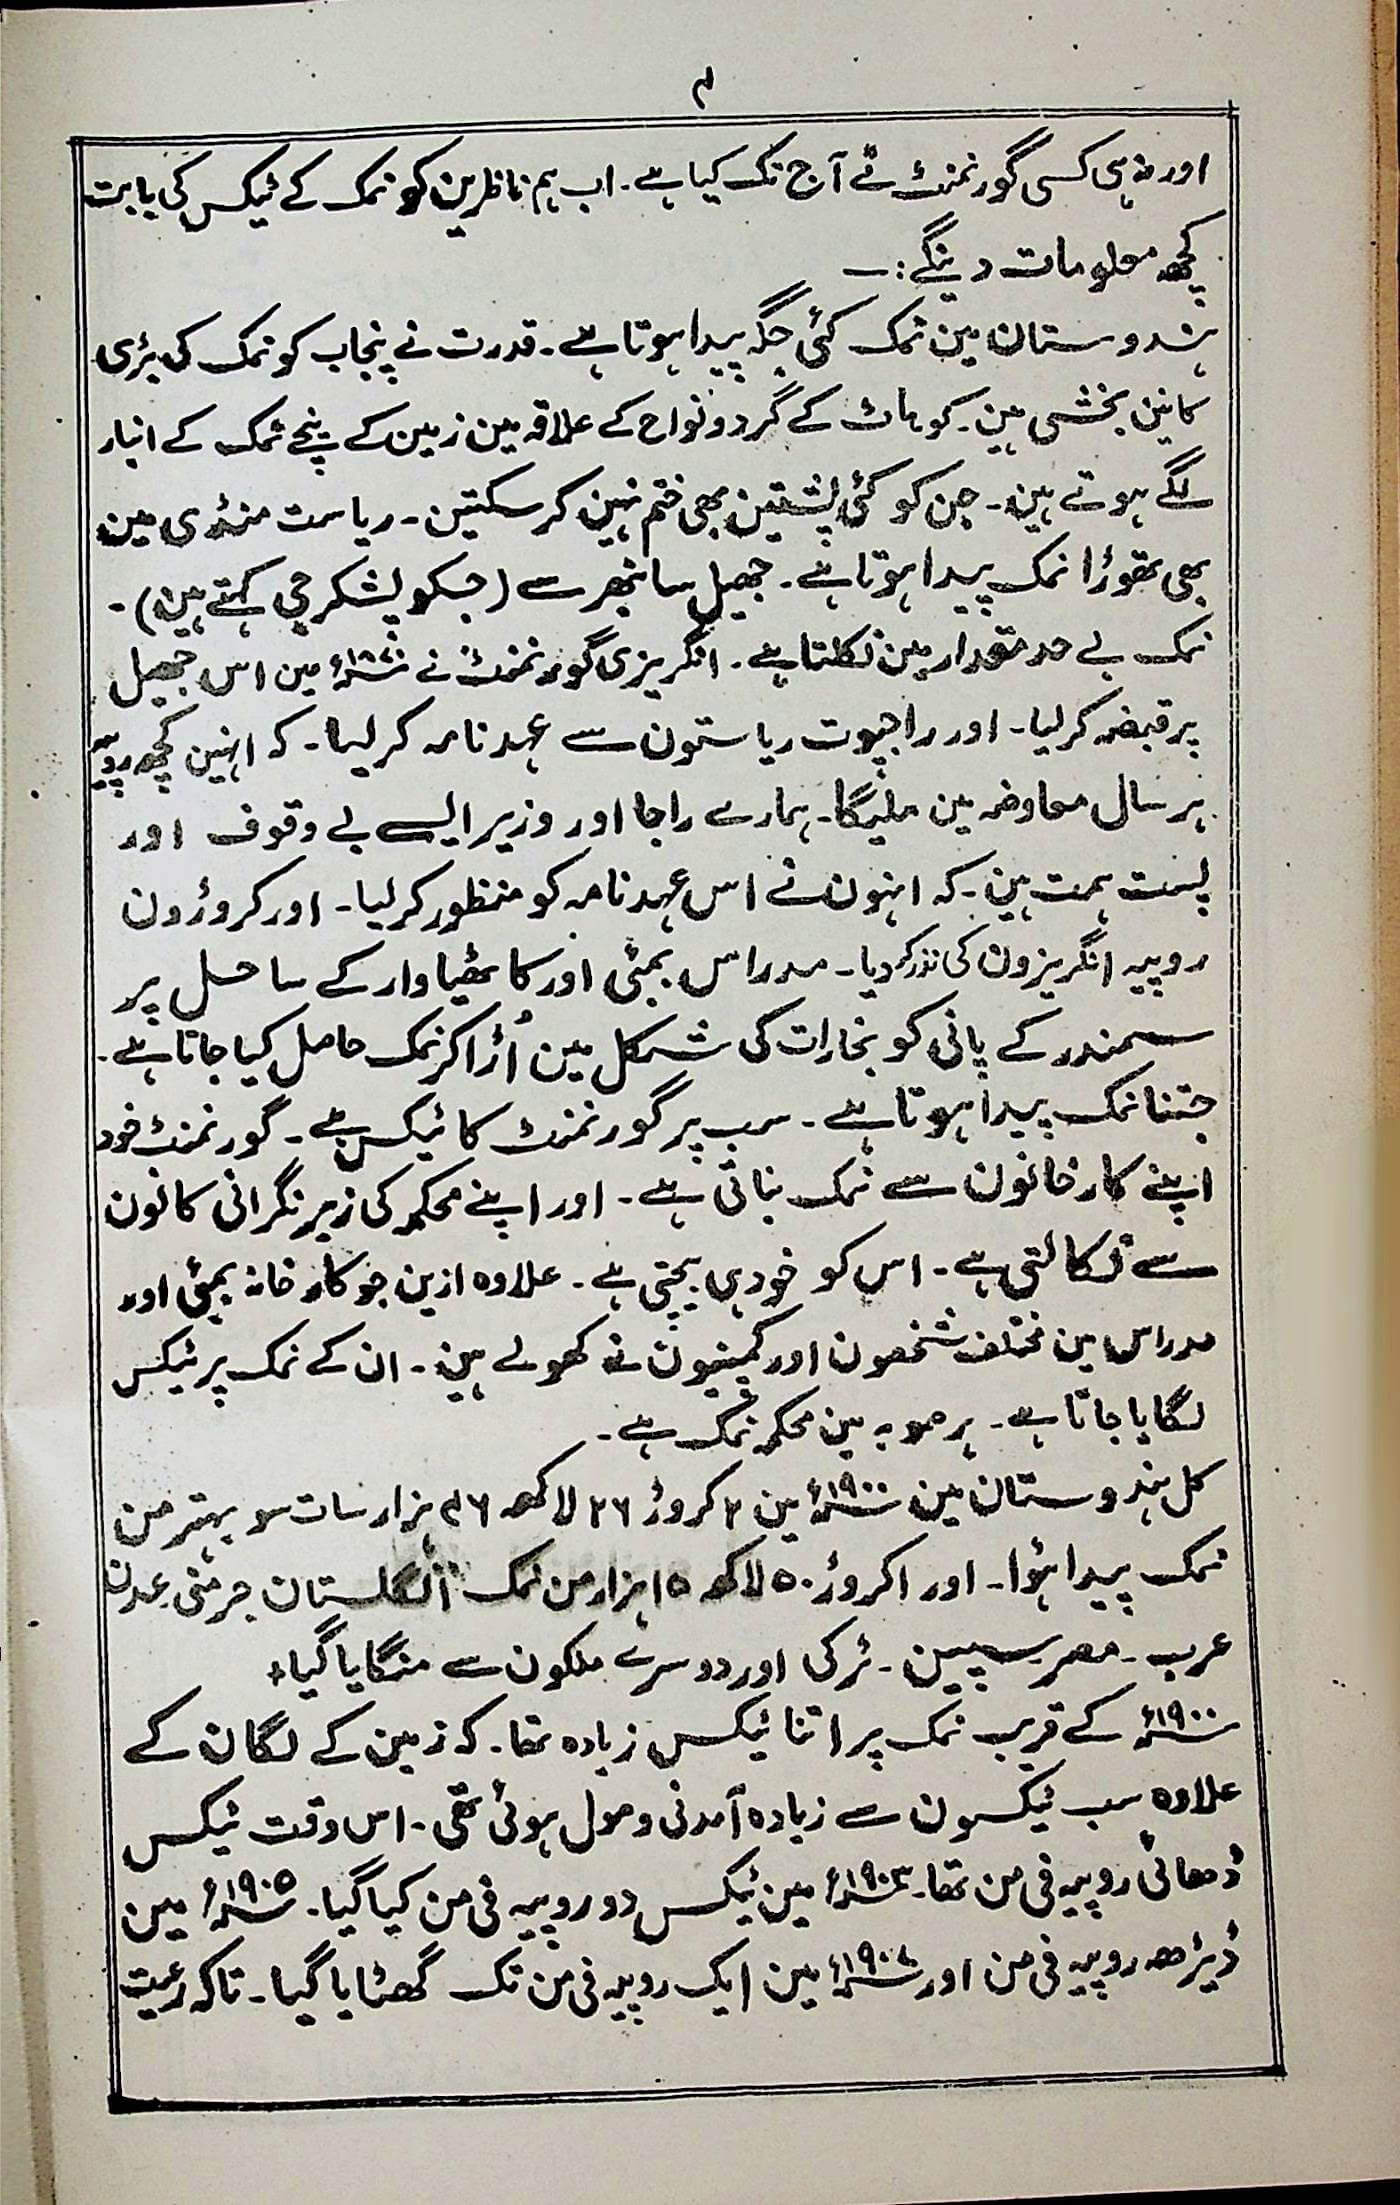 ۴
اور نہ ہی کسی گورنمنٹ نے آج تک کیا ہے۔ اب ہم ناظرین کو نمک کے ٹیکس کی بابت
کچھ معلومات دینگے:۔
ہندوستان مین نمک کئی جگہ پیدا ہوتا ہے۔ قدرت نے پنجاب کو نمک کی بڑی
کانین بخشی ہین۔ کوہاٹ کے گرد و نواح کے علاقہ مین زمین کے نیچے نمک کے انبار
لگے ہوتے ہین۔ جن کو کئی پشتین بھی ختم نہین کر سکتین۔ ریاست منڈی مین
بھی تھوڑا نمک پیدا ہوتا ہے۔ جھیل سانبھر سے (جسکو پشکر جی کہتے ہین)۔
نمک بے حد مقدار مین نکلتا ہے۔ انگریزی گورنمنٹ نے ۱۸۷۰ء مین اس جھیل
پر قبضہ کر لیا۔ اور راجپوت ریاستون سے عہد نامہ کر لیا۔ کہ انہین کچھ روپیہ
ہر سال معاوضہ مین ملیگا۔ ہمارے راجا اور وزیر ایسے بے وقوف اور
پست ہمت ہین۔ کہ انہون نے اس عہد نامہ کو منظور کر لیا۔ اور کروڑون
روپیہ انگریزون کی نذر کر دیا۔ مدراس بمبئی اور کاٹھیاوار کے ساحل پر
سمندر کے پانی کو بخارات کی شکل مین اُڑا کر نمک حاصل کیا جاتا ہے۔
جتنا نمک پیدا ہوتا ہے۔ سب پر گورنمنٹ کا ٹیکس ہے۔ گورنمنٹ خود
اپنے کارخانون سے نمک بناتی ہے۔ اور اپنے محکمہ کی زیر نگرانی کانون
سے نکالتی ہے۔ اس کو خود ہی بیچتی ہے۔ علاوہ ازین جو کارخانہ بمبئی اور
مدراس مین مختلف شخصون اور کمپنیون نے کھولے ہین۔ ان کے نمک پر ٹیکس
لگایا جاتا ہے۔ ہر صوبہ مین محکمہ نمک ہے۔
کل ہندوستان مین ۱۹۰۰ء مین ۲ کروڑ ۲۶ لاکھ ۴۶ ہزار سات سو بہتر من
نمک پیدا ہؤا۔ اور ۱ کروڑ ۵۰ لاکھ ۱۵ ہزار من نمک انگلستان جرمنی عدن
عرب۔ مصر سپین۔ ٹرکی اور دوسرے ملکون سے منگایا گیا۔
۱۹۰۰ء کے قریب نمک پر اتنا ٹیکس زیادہ تھا۔ کہ زمین کے لگان کے
علاوہ سب ٹیکسون سے زیادہ آمدنی وصول ہوئی تھی۔ اس وقت ٹیکس
ڈھائی روپیہ فی من تھا۔ ۱۹۰۳ء مین ٹیکس دو روپیہ فی من کیا گیا۔ ۱۹۰۵ء مین
ڈیڑھ روپیہ فی من اور ۱۹۰۷ء مین ایک روپیہ فی من تک گھٹایا گیا۔ تاکہ رعیت